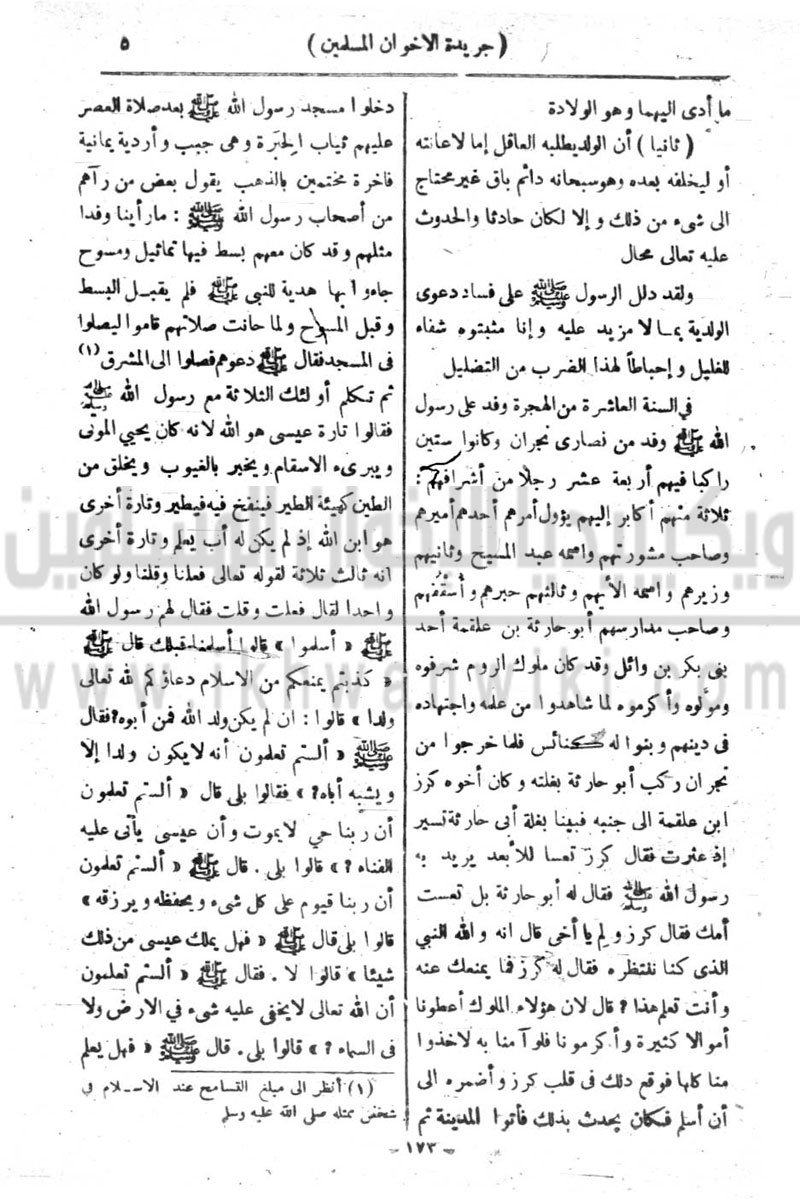 ( جريدة الاخوان المسلمين )
٥
ما أدى اليهما وهو الولادة
( ثانيا ) أن الولد يطلبه العاقل إما لاعانته
أو ليخلفه بعده وهو سبحانه دائم باق غير محتاج
الى شىء من ذلك و إلا لكان حادثا والحدوث
عليه تعالى محال
ولقد دلل الرسول ﷺ على فساد دعوى
الولدية بما لا مزيد عليه و إنا مثبتوه شفاء
للغليل و إحباطاً لهذا الضرب من التضليل
فى السنة العاشرة من الهجرة وفد على رسول
الله ﷺ وفد من نصارى نجران وكانوا ستين
راكبا فيهم أربعة عشر رجلا من أشرافهم :
ثلاثة منهم أكابر إليهم يؤول أمرهم أحدهم أميرهم
وصاحب مشورتهم واسمه عبد المسيح وثانيهم
وزيرهم واسمه الأيهم وثالثهم حبرهم وأسقفهم
وصاحب مدارسهم أبو حارثة بن علقمة أحد
بنى بكر بن وائل وقد كان ملوك الروم شرفوه
ومولوه وأكرموه لما شاهدوا من علمه واجتهاده
فى دينهم وبنوا له كنائس فلما خرجوا من
نجران ركب أبو حارثة بغلته وكان أخوه كرز
ابن علقمة الى جنبه فبينا بغلة أبى حارثة تسير
إذ عثرت فقال كرز تعسا للأبعد يريد به
رسول الله ﷺ فقال له أبو حارثة بل تعست
أمك فقال كرز و لم يا أخى قال انه والله النبي
الذى كنا ننتظره فقال له كرز فما يمنعك عنه
وأنت تعلم هذا ؟ قال لان هؤلاء الملوك أعطونا
أموالا كثيرة وأكرمونا فلو آمنا به لاخذوا
منا كلها فوقع ذلك فى قلب كرز وأضمره الى
أن أسلم فكان يحدث بذلك فأتوا المدينة ثم
دخلوا مسجد رسول الله ﷺ بعد صلاة العصر
عليهم ثياب الحبَرة وهى جبب وأردية يمانية
فاخرة مختمين بالذهب يقول بعض من رآهم
من أصحاب رسول الله ﷺ : ما رأينا وفدا
مثلهم وقد كان معهم بسط فيها تماثيل ومسوح
جاءوا بها هدية للنبى ﷺ فلم يقبل البسط
وقبل المسوح ولما حانت صلاتهم قاموا ليصلوا
فى المسجد فقال ﷺ دعوهم فصلوا الى المشرق (١)
ثم تكلم أولئك الثلاثة مع رسول الله ﷺ
فقالوا تارة عيسى هو الله لانه كان يحيي الموتى
ويبرىء الاسقام ويخبر بالغيوب ويخلق من
الطين كهيئة الطير فينفخ فيه فيطير وتارة أخرى
هو ابن الله إذ لم يكن له أب يعلم وتارة أخرى
انه ثالث ثلاثة لقوله تعالى فعلنا وقلنا ولو كان
واحدا لقال فعلت وقلت فقال لهم رسول الله
ﷺ « أسلموا » قالوا أسلمنا قبلك قال ﷺ
« كذبتم يمنعكم من الاسلام دعاؤكم لله تعالى
ولدا » قالوا : ان لم يكن ولد الله فمن أبوه؟ فقال
ﷺ « ألستم تعلمون أنه لا يكون ولدا إلا
و يشبه أباه؟ » فقالوا بلى قال « ألستم تعلمون
أن ربنا حي لا يموت وأن عيسى يأتى عليه
الفناء ؟ » قالوا بلى . قال ﷺ « ألستم تعلمون
أن ربنا قيوم على كل شىء ويحفظه ويرزقه »
قالوا بلى قال ﷺ « فهل يملك عيسى من ذلك
شيئا » قالوا لا . فقال ﷺ « ألستم تعلمون
أن الله تعالى لا يخفى عليه شىء في الارض ولا
فى السماء ؟ » قالوا بلى . قال ﷺ « فهل يعلم
(١) أنظر الى مبلغ التسامح عند الاسلام في
شخص ممثله صلى الله عليه وسلم
- ١٧٣ -
ويكيبيديا الإخوان المسلمين
www.ikhwanwiki.com